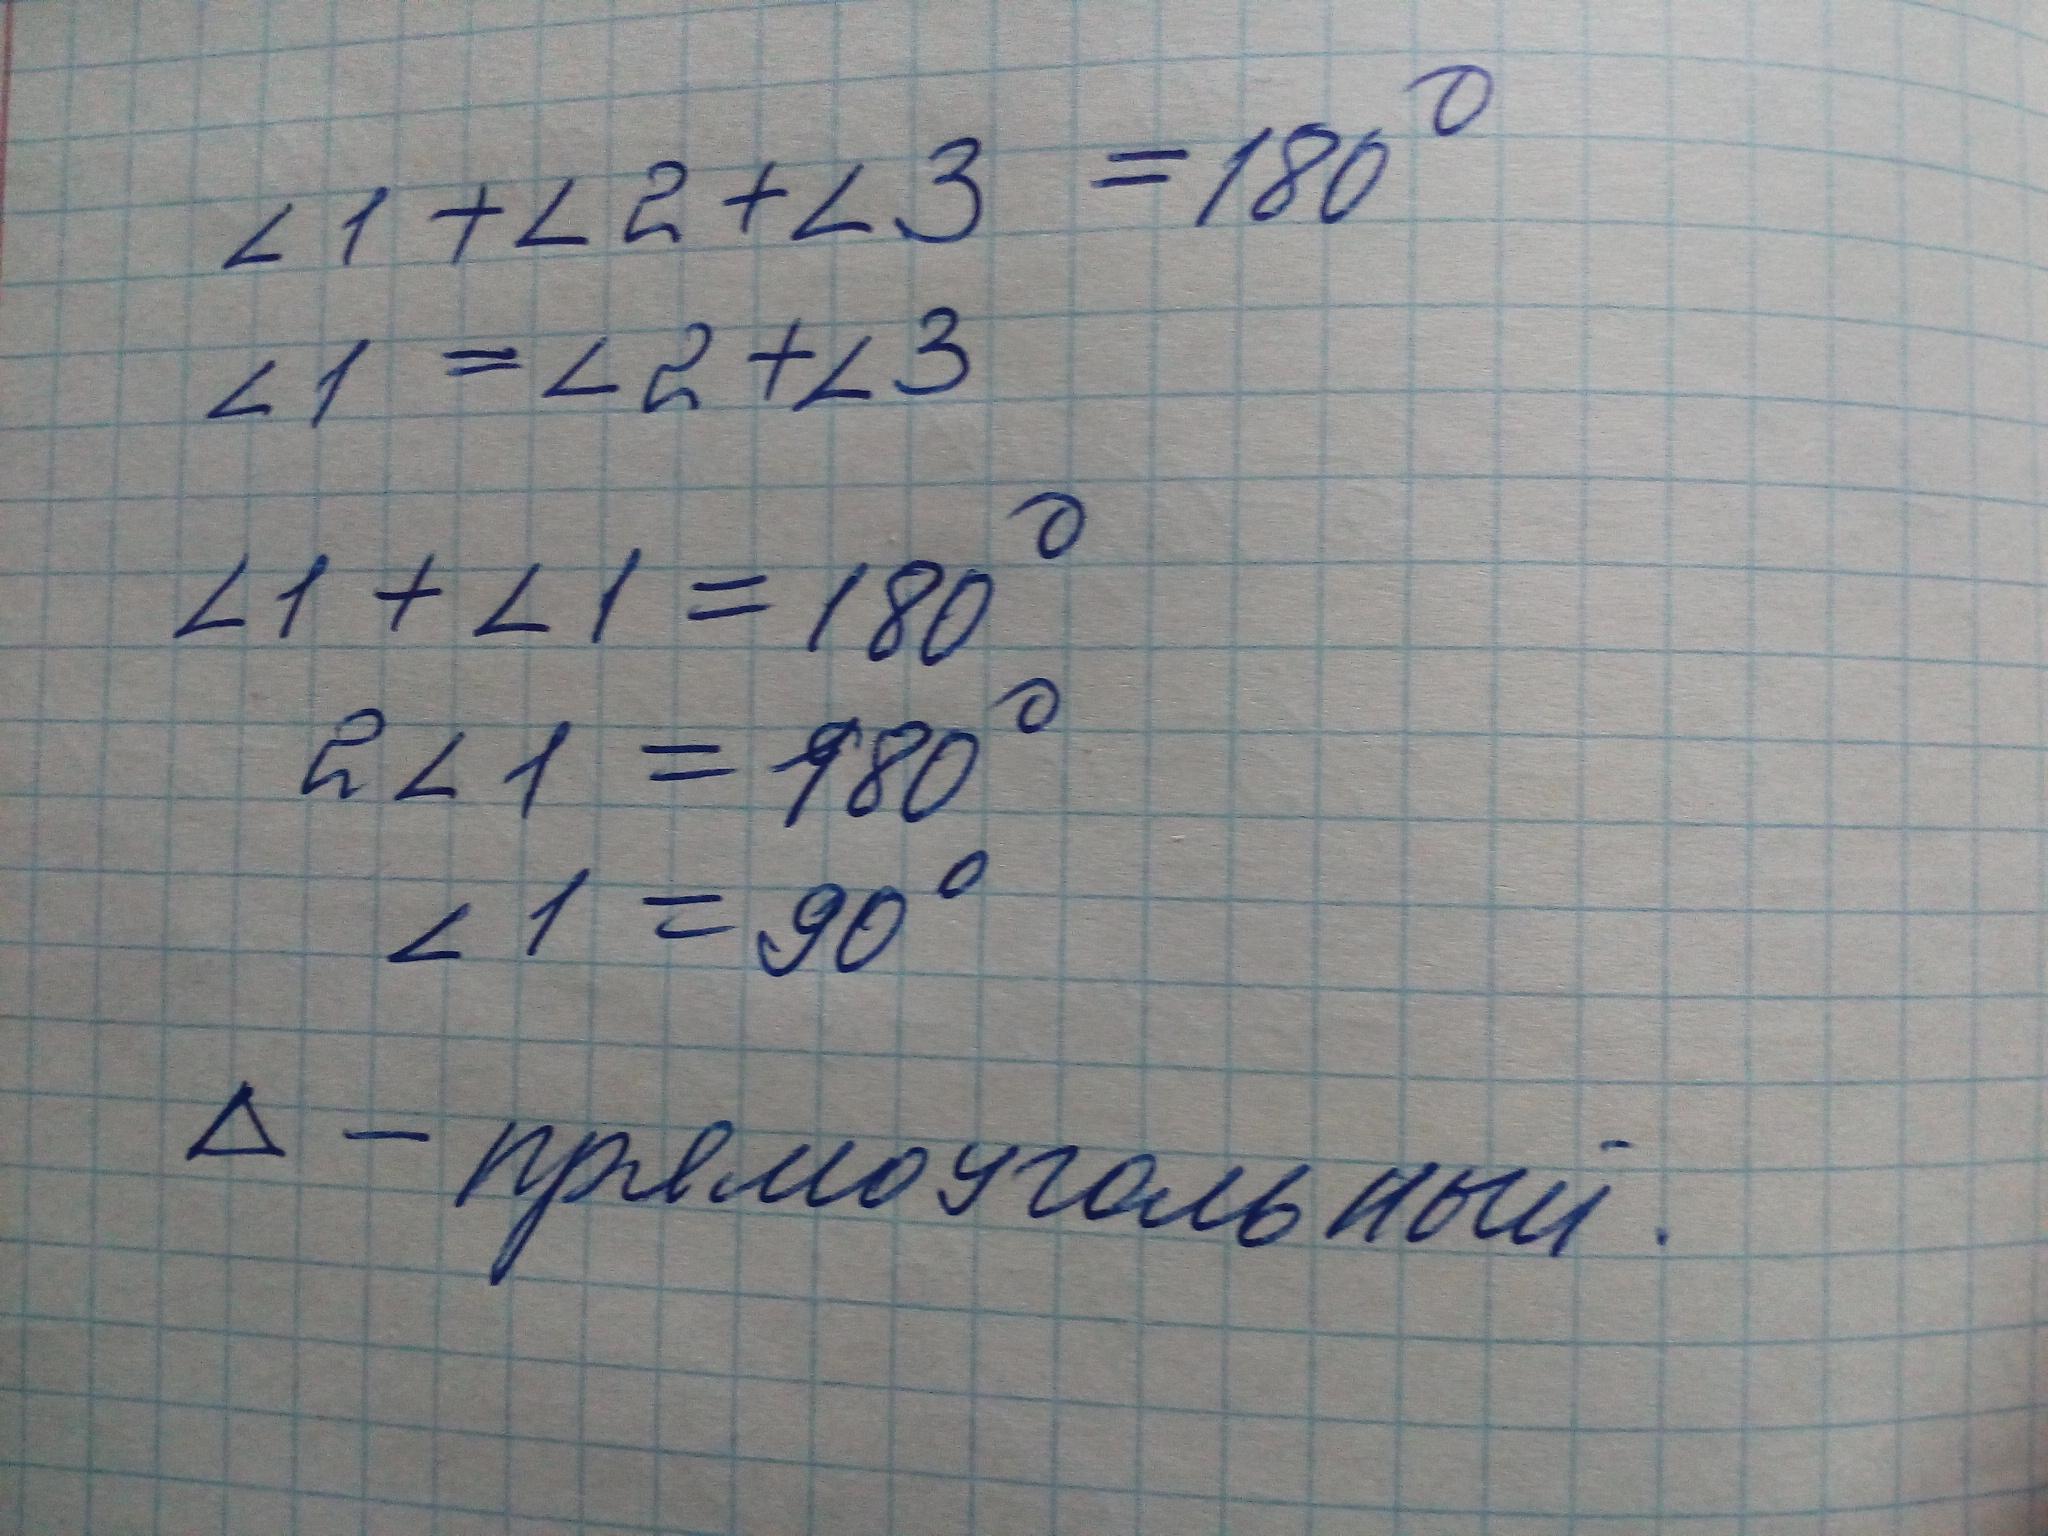 ∠1 + ∠2 + ∠3 = 180°
∠1 = ∠2 + ∠3
∠1 + ∠1 = 180°
2∠1 = 180°
∠1 = 90°
Δ - прямоугольный.